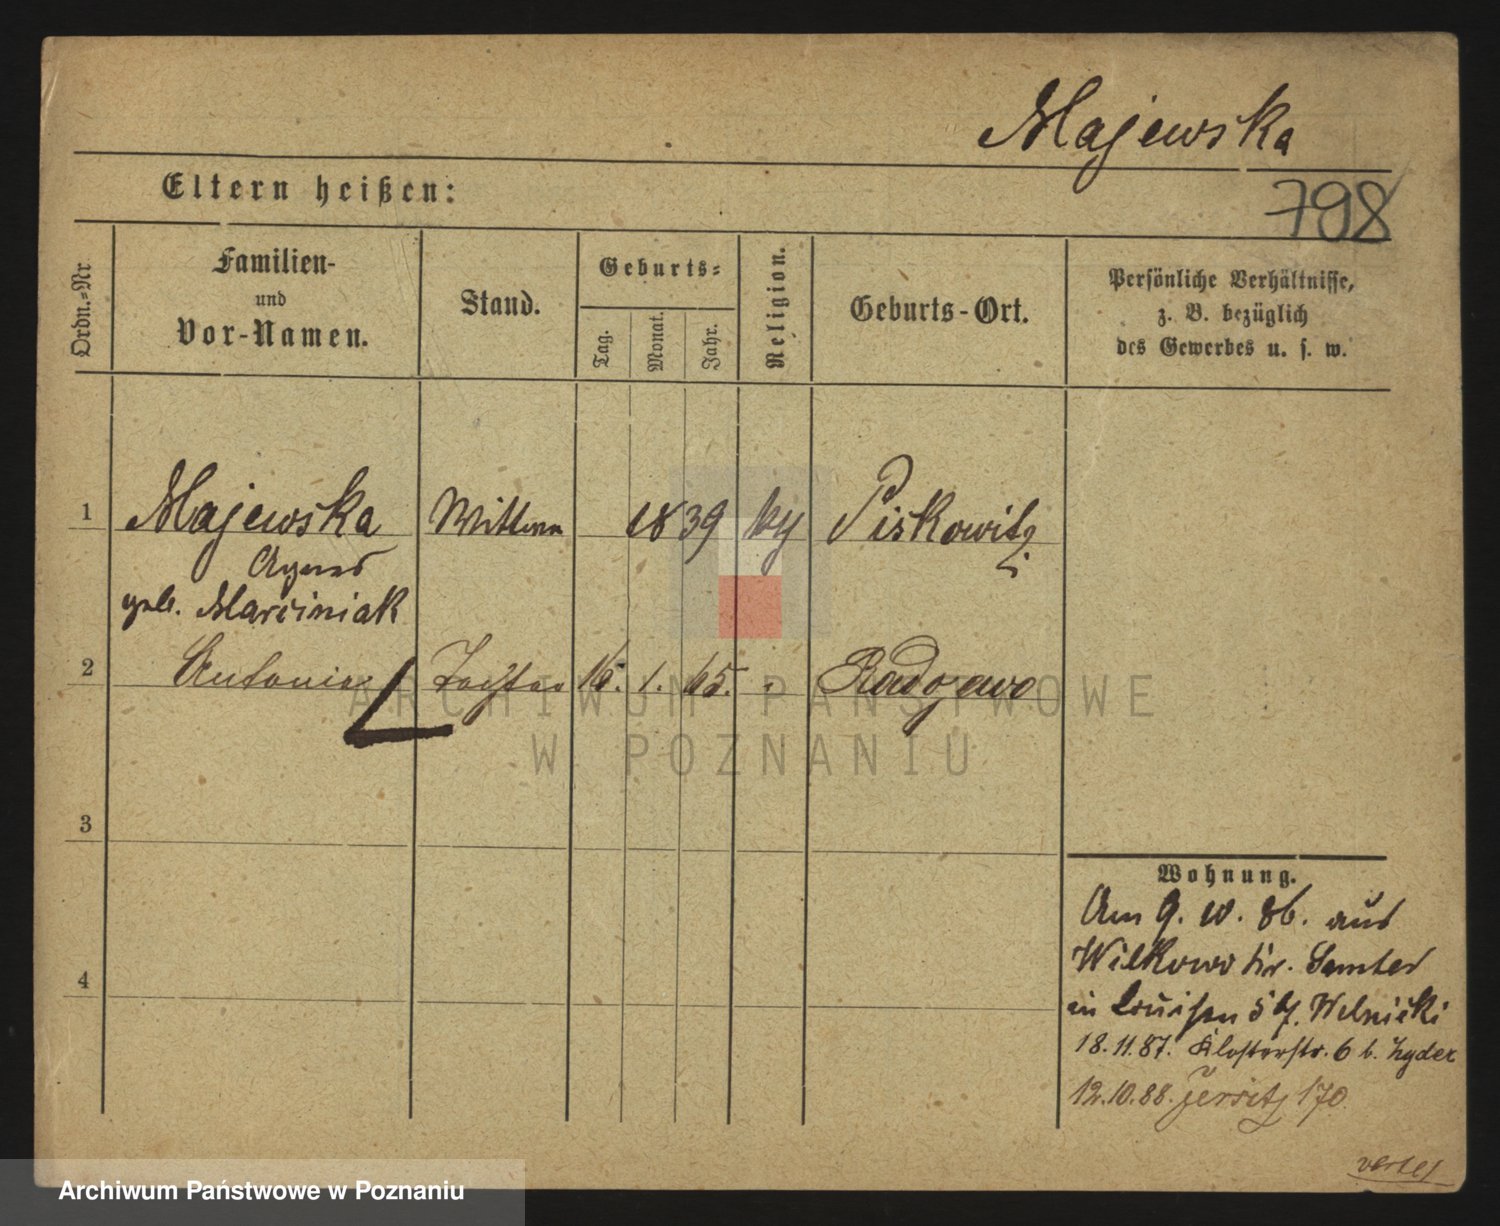 Majewska
798
Eltern heißen:
Ordn.=Nr
Familien-
und
Vor-Namen.
Stand.
Geburts=
Tag.
Monat.
Jahr.
Religion.
Geburts-Ort.
Persönliche Verhältnisse,
z. B. bezüglich
des Gewerbes u. s. w.
1 Majewska 1839 Piskowitz
Agnes
geb. Marciniak
2 Antonie Tochter 15. 1. 65. Radojewo
3
4
Wohnung.
Am 9. 10. 86. aus
Wilkowo Kr. Samter
in Louisen 5 Welnicki
18.11.87. Klosterstr. 6 b.
12.10.88. Jersitz 170.
ARCHIWUM PAŃSTWOWE
W POZNANIU
Archiwum Państwowe w Poznaniu